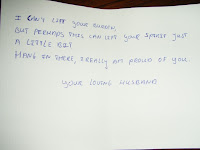 I CAN'T LIFT YOUR BURDEN,
BUT PERHAPS THIS CAN LIFT YOUR SPIRIT JUST
A LITTLE BIT
HANG IN THERE, I REALLY AM PROUD OF YOU.
YOUR LOVING HUSBAND